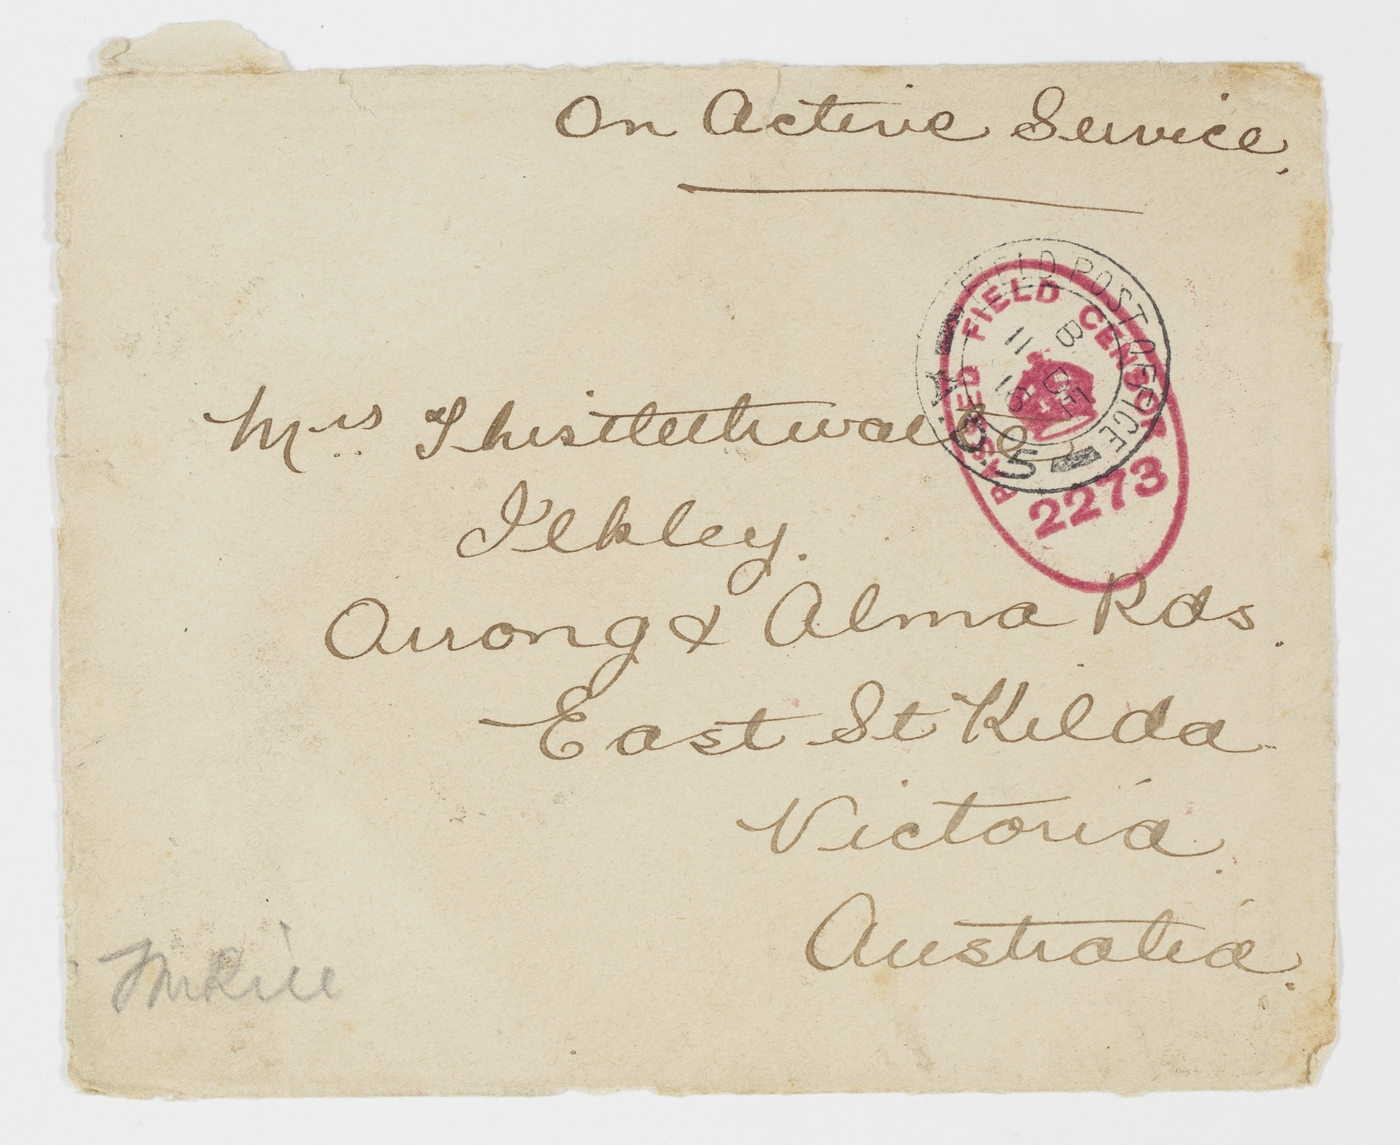 On Active Service.
FIELD POST OFFICE
B
11 DE
16
PASSED FIELD CENSOR
2273
Mrs Thistlethwaite
Ilkley.
Orrong & Alma Rds.
East St Kilda
Victoria.
Australia.